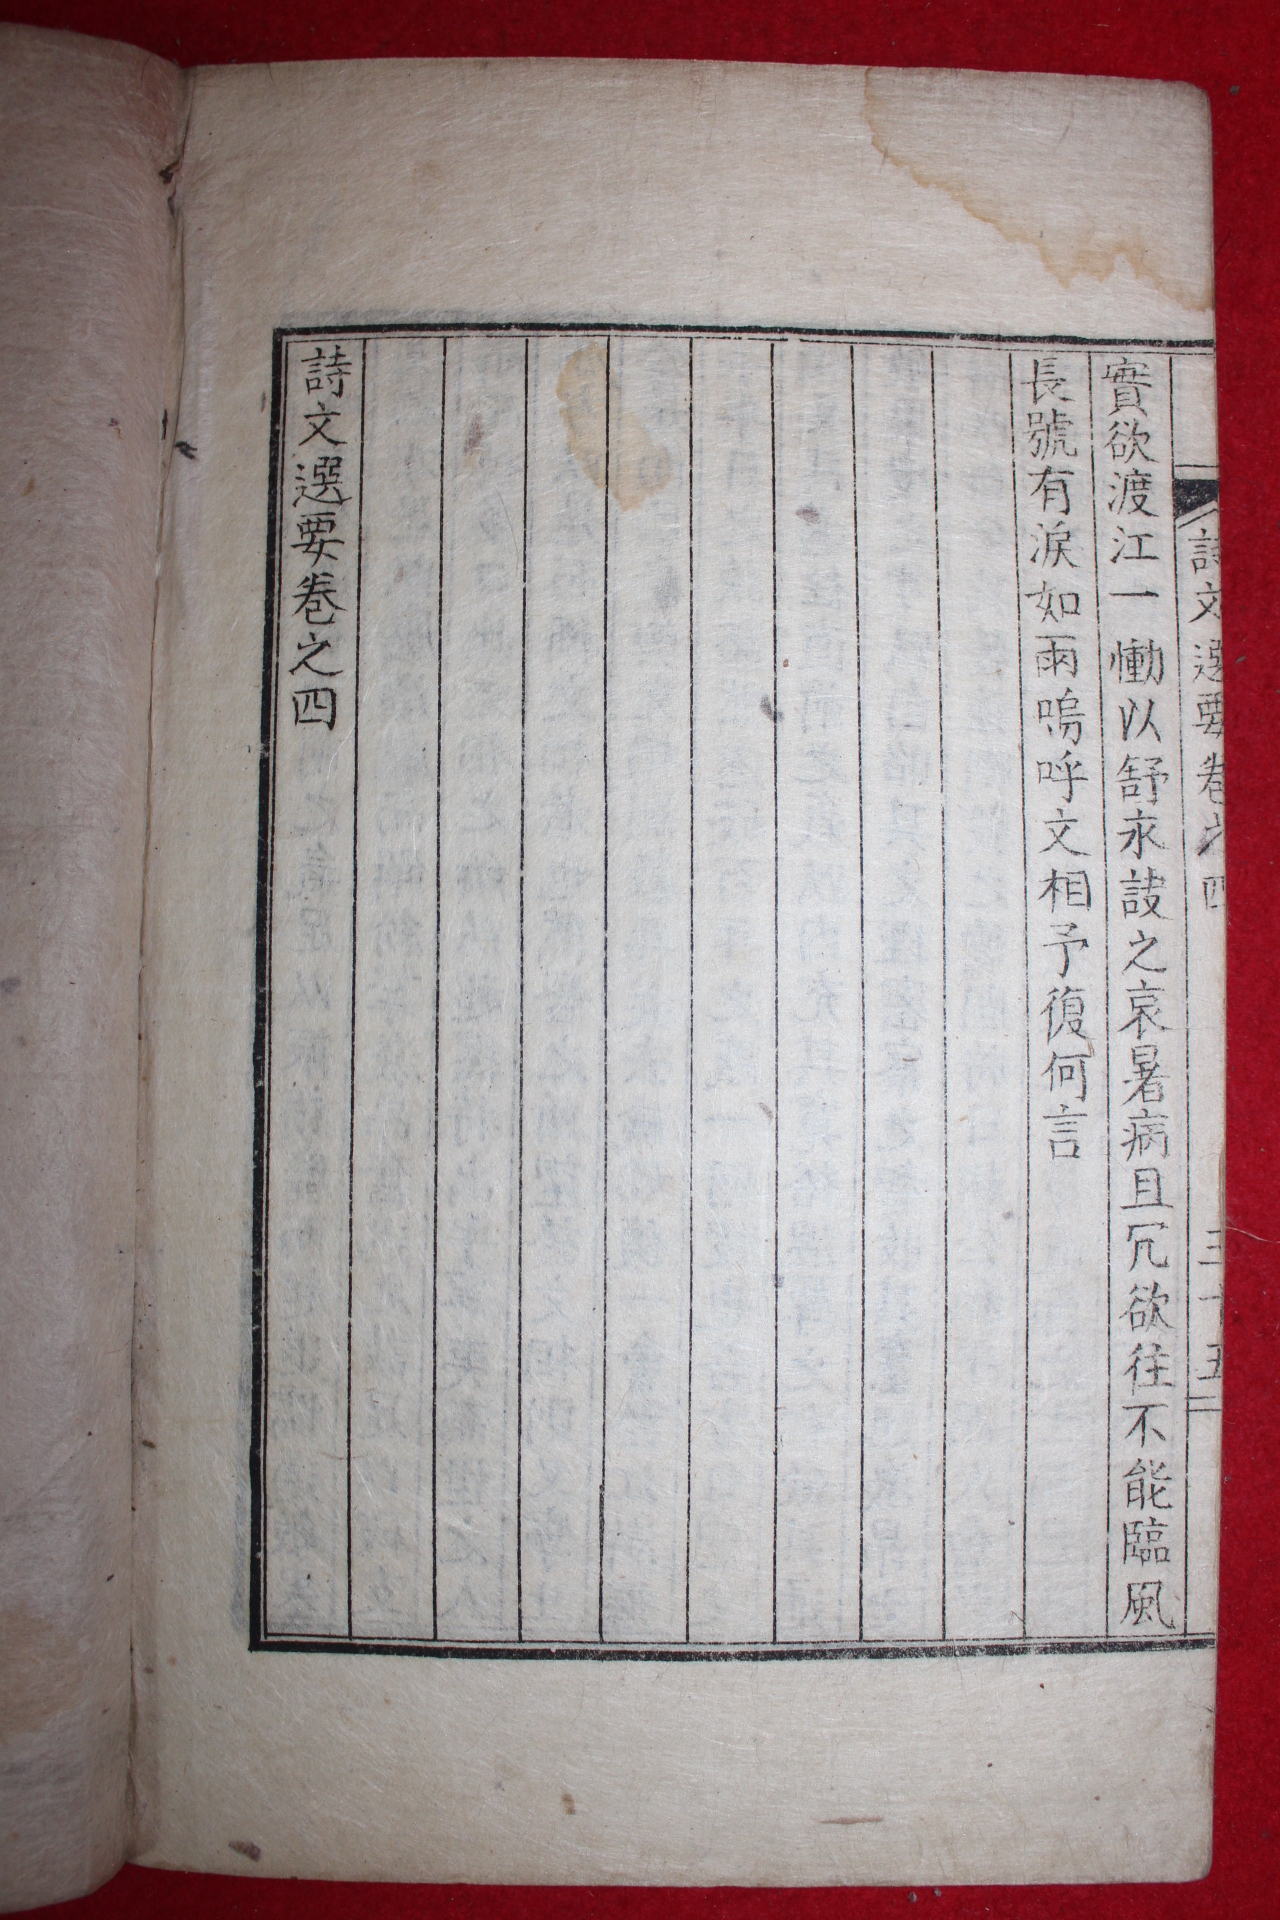 詩文選要卷之四 三十五
實欲渡江一慟以舒永訣之哀暑病且冗欲往不能臨風
長號有淚如雨嗚呼文相予復何言
詩文選要卷之四